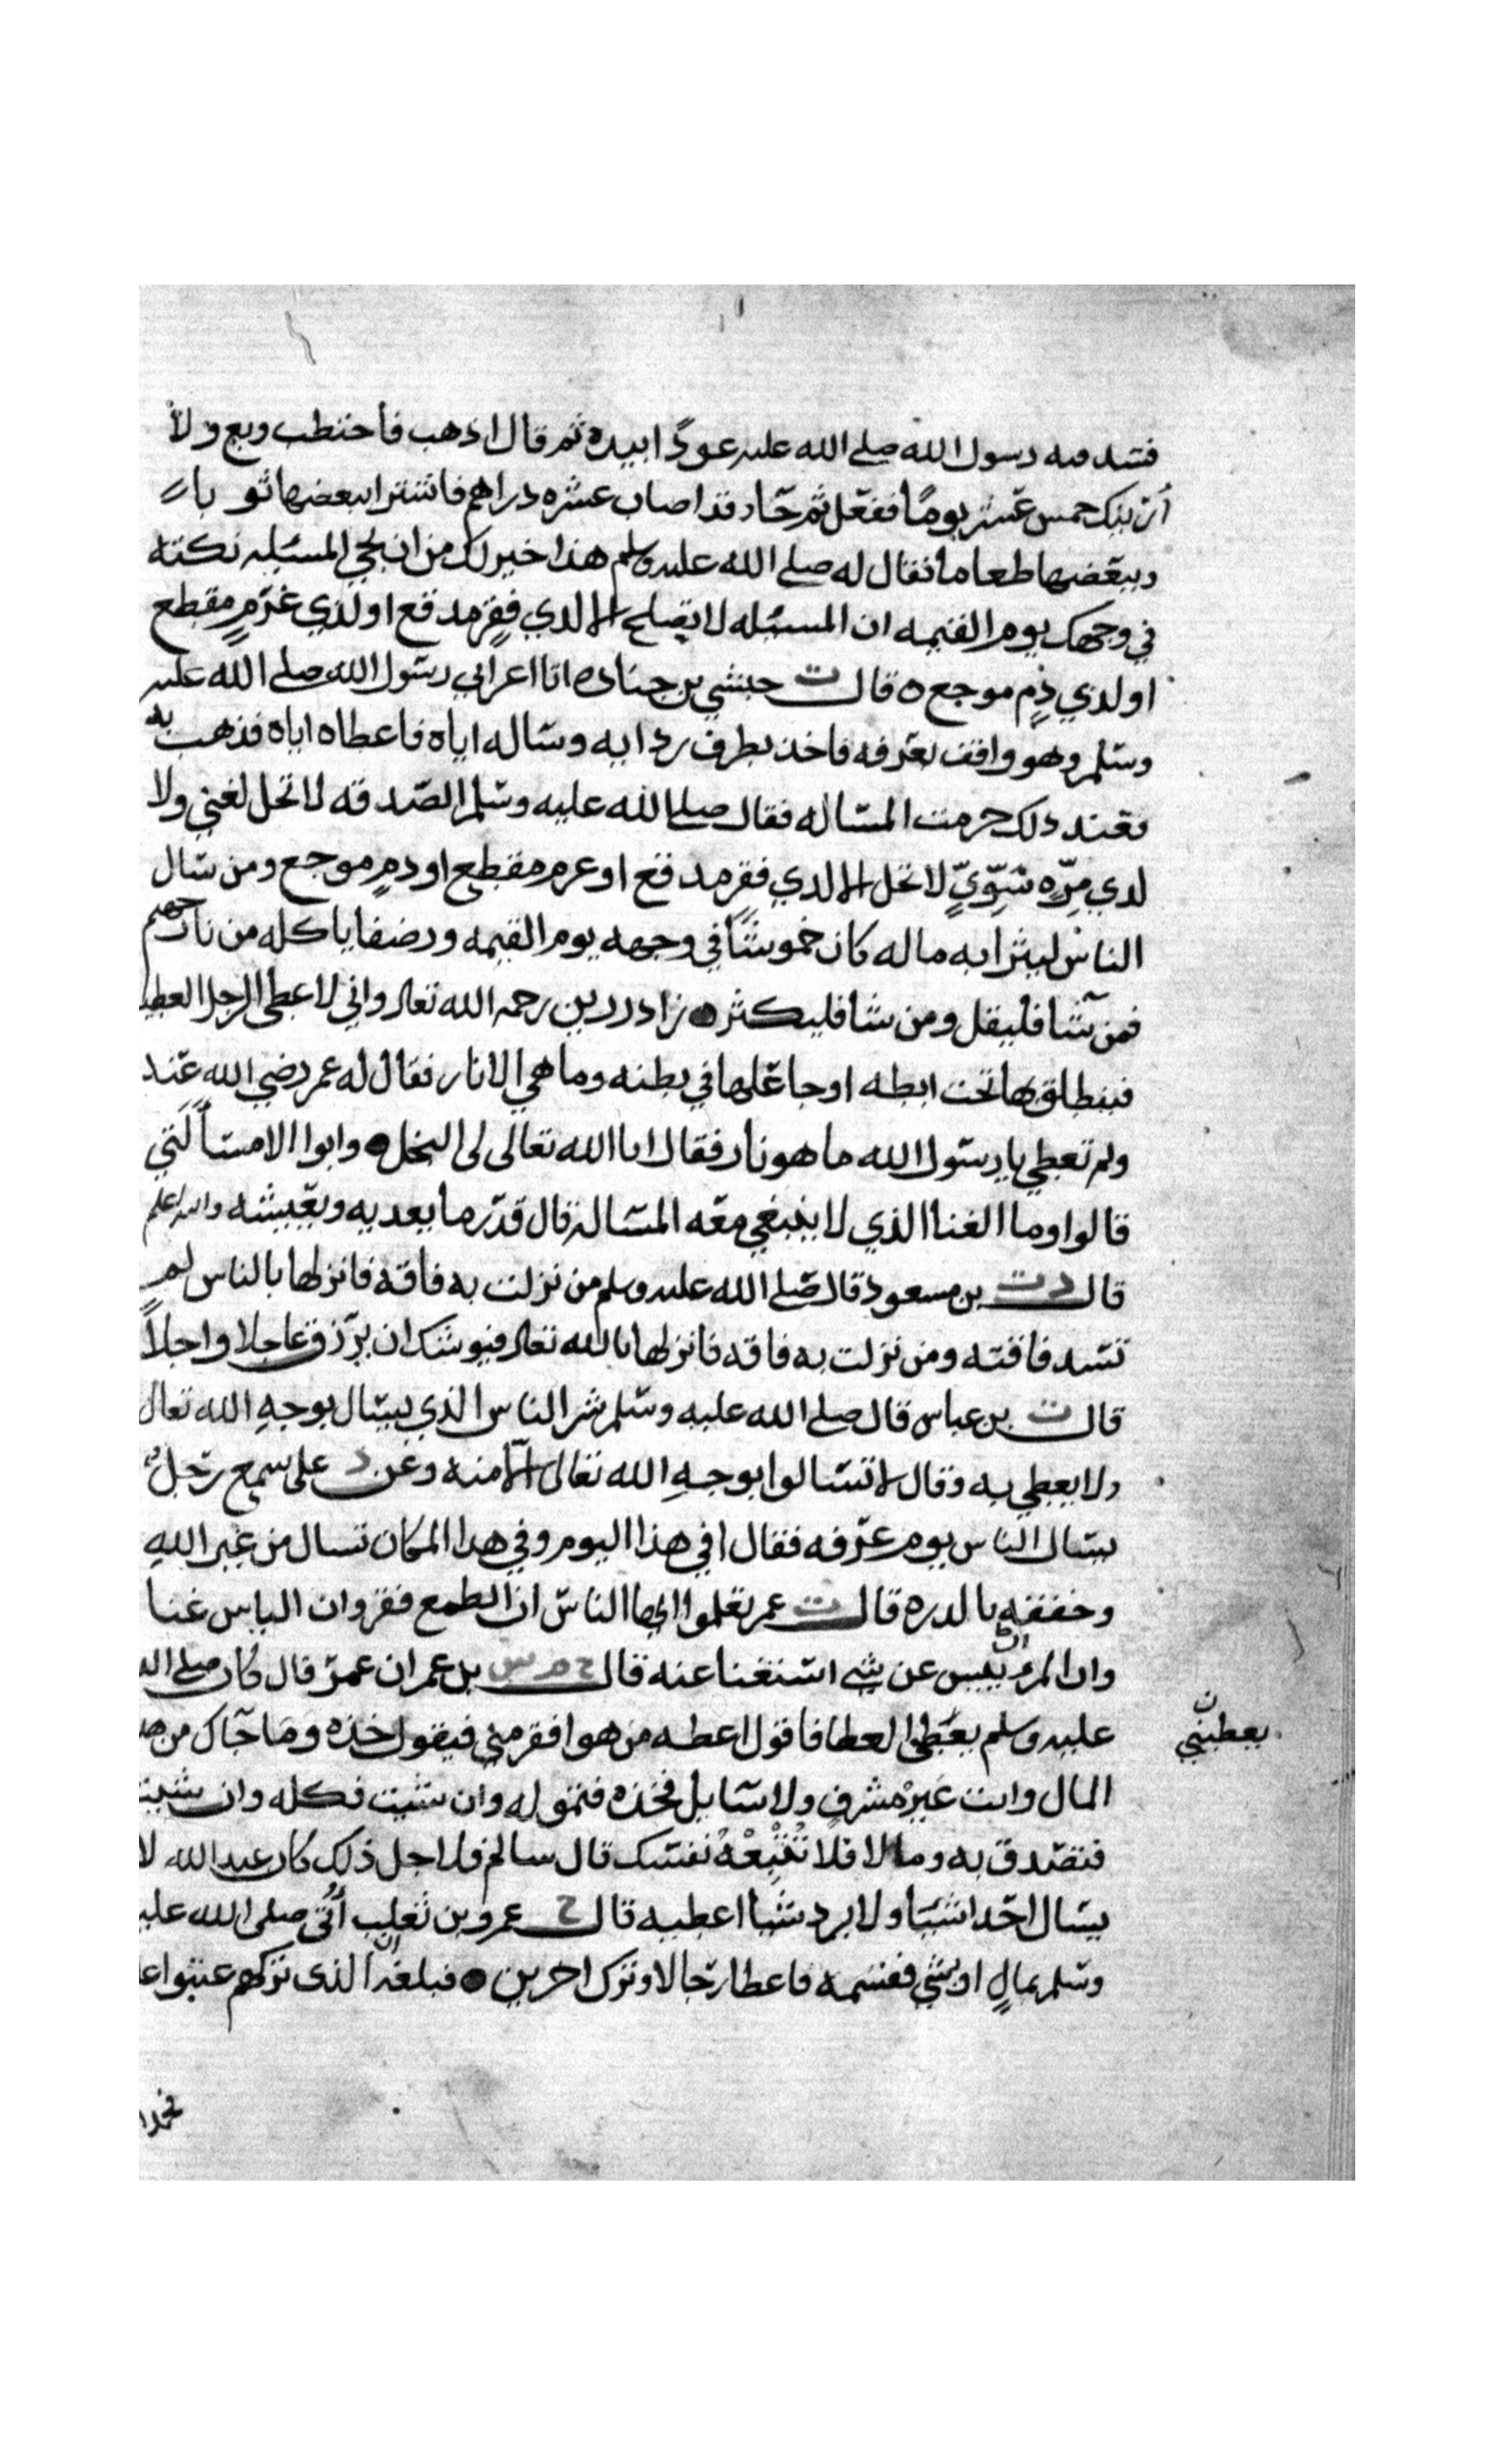 فشد فيه رسول الله صلى الله عليه عودا بيده ثم قال اذهب فاحتطب وبع ولا
أرينك خمس عشر يوما ففعل ثم جا وقد اصاب عشره دراهم فاشترا ببعضها ثوبا
وببعضها طعاما فقال له صلى الله عليه وسلم هذا خير لك من ان تجي المسئله نكته
في وجهك يوم القيمه ان المسئله لا تصلح الا لدي فقر مدقع او لذي غرم مقطع
او لذي دم موجع ه قال ت حبشي بن جناده اتا اعرابي رسول الله صلى الله عليه
وسلم وهو واقف بعرفه فاخذ بطرف ردايه وساله اياه فاعطاه اياه فذهب به
فعند ذلك حرمت المساله فقال صلى الله عليه وسلم الصدقه لا تحل لغني ولا
لدي مره سوي لا تحل الا لدي فقر مدقع او غرم مقطع او دم موجع ومن سال
الناس ليثرا به ماله كان خموشا في وجهه يوم القيمه ورضفا ياكله من نار جهنم
فمن شا فليقل ومن شا فليكثر زاد رزين رحمه الله تعالى واني لاعطي الرجل العطيه
فينطلق بها تحت ابطه او جاعلها في بطنه وما هي الا نار فقال له عمر رضي الله عنه
ولم تعطي يا رسول الله ما هو نار فقال ابا الله تعالى لي البخل وابوا الا مسألتي
قالوا وما الغنا الذي لا ينبغي معه المساله قال قدر ما يغديه ويعيشه والله اعلم
قال د ت بن مسعود قال صلى الله عليه وسلم من نزلت به فاقه فانزلها بالناس لم
تسد فاقته ومن نزلت به فاقه فانزلها بالله تعالى فيوشك ان يرزق عاجلا واجلا
قال ت بن عباس قال صلى الله عليه وسلم شر الناس الذي يسال بوجه الله تعالى
ولا يعطي به وقال لا تسالوا بوجه الله تعالى الا منه وعن د على سمع رجل
يسال الناس يوم عرفه فقال افي هذا اليوم وفي هدا المكان تسال من غير الله
وخفقه بالدره قال ت عمر تعلموا ايها الناس ان الطمع فقر وان الياس غنا
وان المرء ييس عن شي استغنا عنه قال خ م س بن عمر ان عمر قال كان صلى الله
عليه وسلم يعطي العطا فاقول اعطه من هو افقر مني فيقول خذه وما جاك من هد
يعطيني ن
المال وانت غير مشرف ولا سايل فخذه فتموله وان شيت فكله وان شيت
فتصدق به وما لا فلا تتبعه نفسك قال سالم فلاجل ذلك كان عبد الله لا
يسال احدا شيا ولا يرد شيا اعطيه قال خ عمرو بن تغلب أتى صلى الله عليه
وسلم بمال او بشي فقسمه فاعطا رجالا وترك اخرين فبلغه ان الذي تركهم عتبوا
فحمد ا